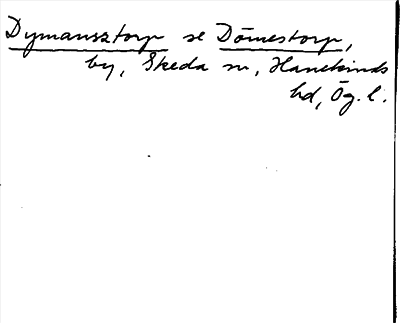 Dymansztorp se Dömestorp,
by, Skeda sn, Hanekinds
hd, Ög. l.